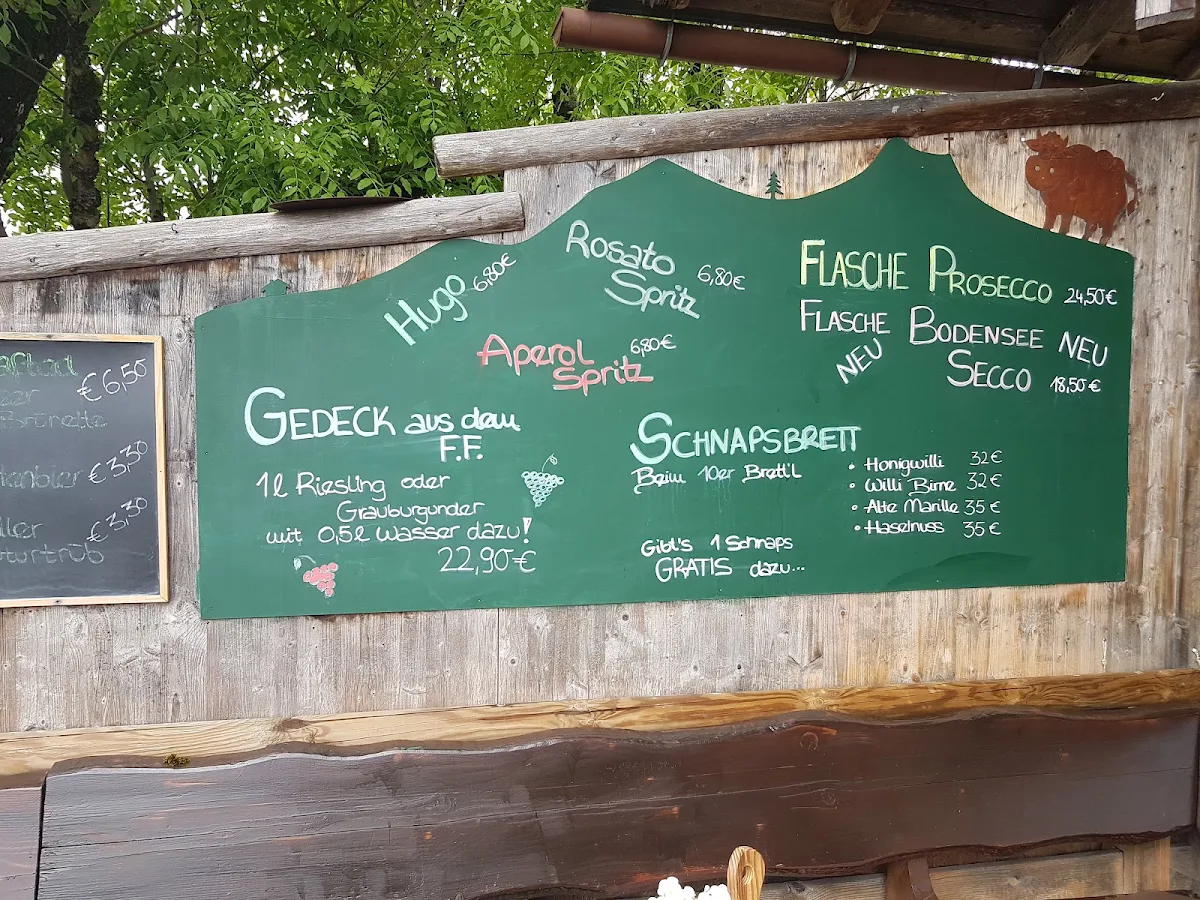 Hugo 6,80€
Rosato 6,80€
Spritz
Aperol 6,80€
Spritz
FLASCHE PROSECCO 24,50€
FLASCHE BODENSEE NEU
NEU SECCO 18,50€
GEDECK aus dem
F.F.
1l Riesling oder
Grauburgunder
mit 0,5l Wasser dazu!
22,90€
SCHNAPSBRETT
Beim 10er Brettl
• Honigwilli 32€
• Willi Birne 32€
• Alte Marille 35€
• Haselnuss 35€
Gibt's 1 Schnaps
GRATIS dazu...
€6,50
€3,30
€3,30